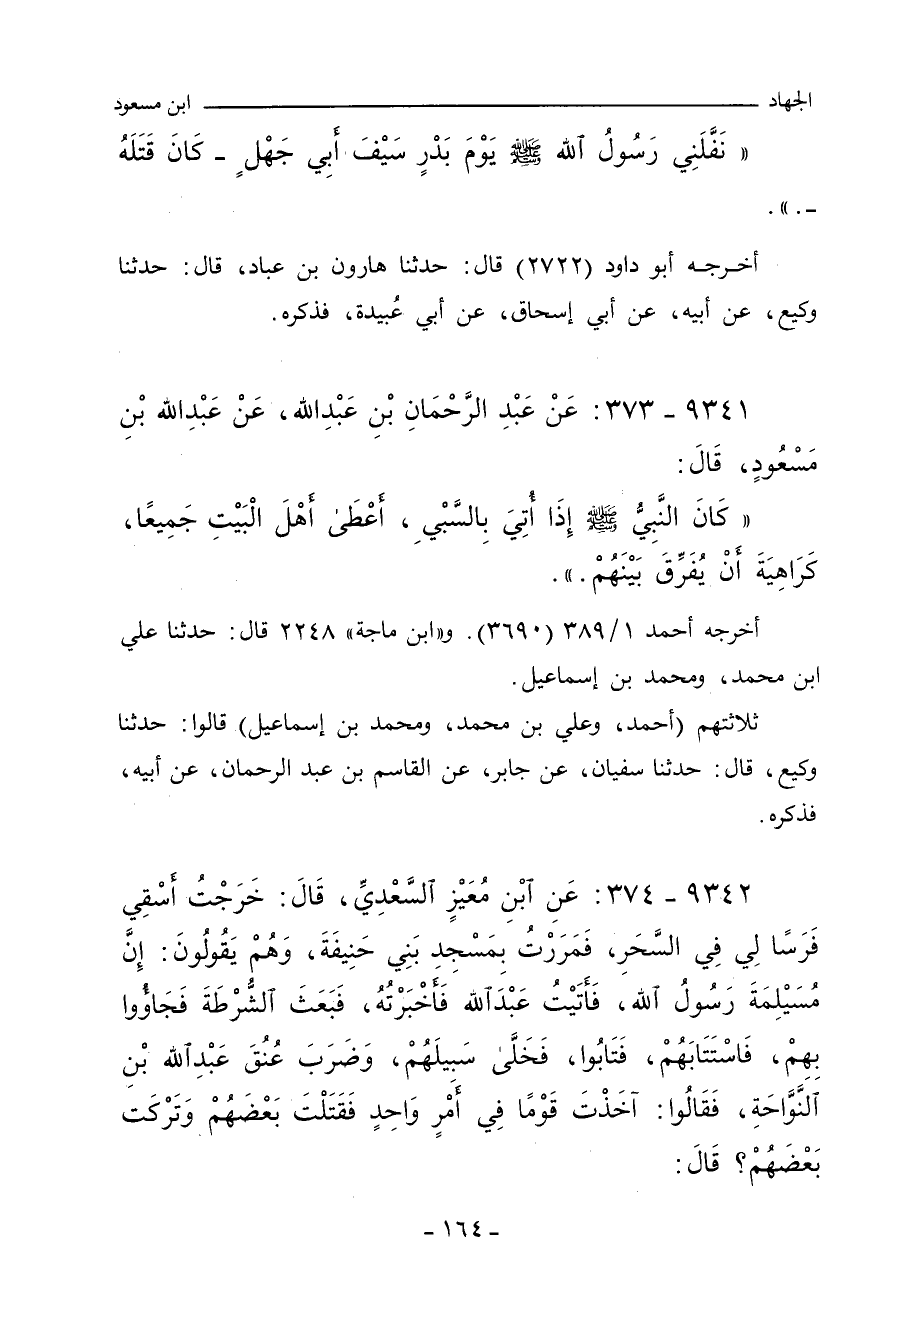 الجهاد ــــــــــــــــــــ ابن مسعود
« نَفَّلَنِي رَسُولُ ٱللهِ ﷺ يَوْمَ بَدْرٍ سَيْفَ أَبِي جَهْلٍ ـ كَانَ قَتَلَهُ
ـ . » .
أخـرجـه أبو داود (٢٧٢٢) قال: حدثنا هارون بن عباد، قال: حدثنا
وكيع، عن أبيه، عن أبي إسحاق، عن أبي عُبيدة، فذكره.
٩٣٤١ ـ ٣٧٣: عَنْ عَبْدِ الرَّحْمَانِ بْنِ عَبْدِالله، عَنْ عَبْدِالله بْنِ
مَسْعُودٍ، قَالَ:
« كَانَ النَّبِيُّ ﷺ إِذَا أُتِيَ بِالسَّبْيِ، أَعْطَىٰ أَهْلَ الْبَيْتِ جَمِيعًا،
كَرَاهِيَةَ أَنْ يُفَرِّقَ بَيْنَهُمْ . » .
أخرجه أحمد ١/ ٣٨٩ (٣٦٩٠). و«ابن ماجة» ٢٢٤٨ قال: حدثنا علي
ابن محمد، ومحمد بن إسماعيل.
ثلاثتهم (أحمد، وعلي بن محمد، ومحمد بن إسماعيل) قالوا: حدثنا
وكيع، قال: حدثنا سفيان، عن جابر، عن القاسم بن عبد الرحمان، عن أبيه،
فذكره.
٩٣٤٢ ـ ٣٧٤: عَنِ ٱبْنِ مُعَيْزٍ ٱلسَّعْدِيِّ، قَالَ: خَرَجْتُ أَسْقِي
فَرَسًا لِي فِي السَّحَرِ، فَمَرَرْتُ بِمَسْجِدِ بَنِي حَنِيفَةَ، وَهُمْ يَقُولُونَ: إِنَّ
مُسَيْلِمَةَ رَسُولُ الله، فَأَتَيْتُ عَبْدَٱلله فَأَخْبَرْتُهُ، فَبَعَثَ ٱلشُّرْطَةَ فَجَاؤُوا
بِهِمْ، فَاسْتَتَابَهُمْ، فَتَابُوا، فَخَلَّىٰ سَبِيلَهُمْ، وَضَرَبَ عُنُقَ عَبْدِٱلله بْنِ
ٱلنَّوَّاحَةِ، فَقَالُوا: آخَذْتَ قَوْمًا فِي أَمْرٍ وَاحِدٍ فَقَتَلْتَ بَعْضَهُمْ وَتَرَكْت
بَعْضَهُمْ؟ قَالَ:
ـ ١٦٤ ـ